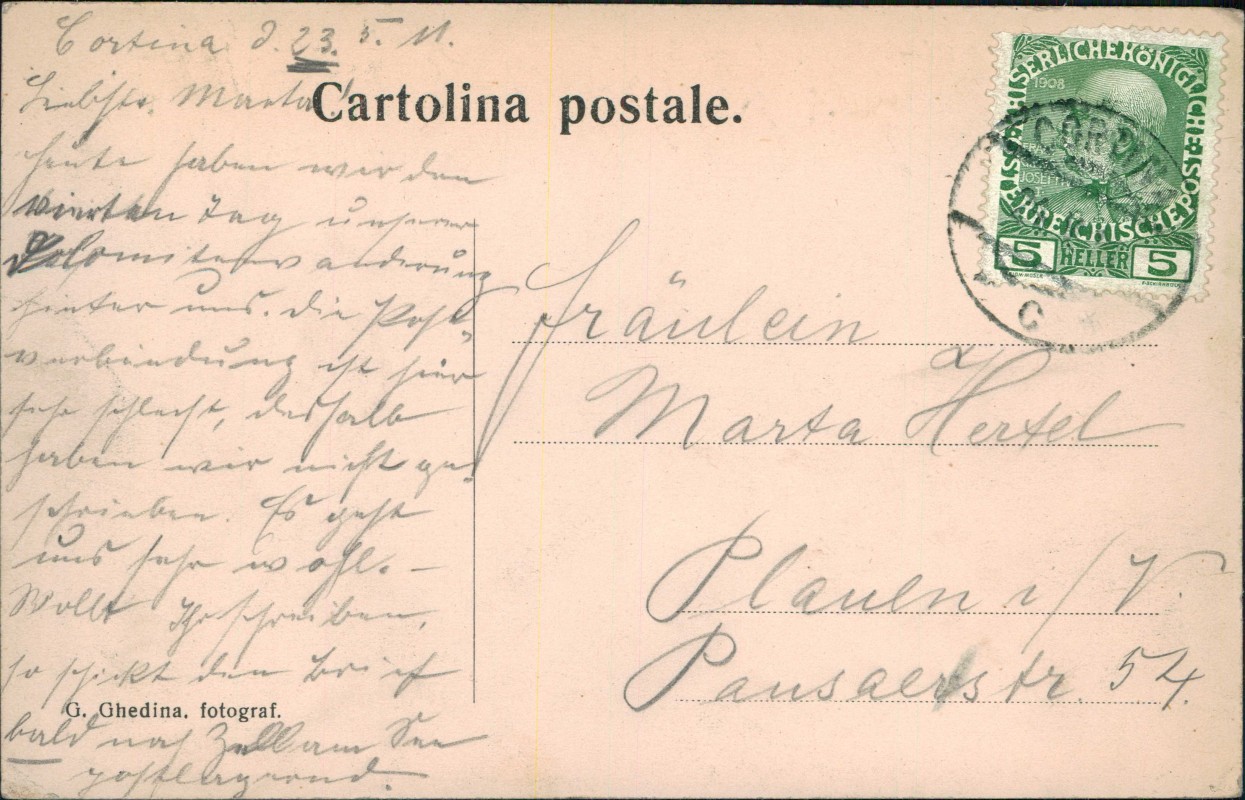 Cortina d. 23. 5. 11.
Liebste Marta!
Cartolina postale.
heute haben wir den
vierten Tag unserer
Dolomitenwanderung
hinter uns. die Post
verbindung ist hier
sehr schlecht, deshalb
haben wir nicht ge-
schrieben. Es geht
uns sehr wohl. –
Wollt Ihr schreiben,
so schickt den Brief
bald nach Zell am See
postlagernd.
G. Ghedina, fotograf.
KAISERLICHE KÖNIGLICHE ÖSTERREICHISCHE POST
1908
5 HELLER 5
Fräulein
Marta Hertel
Plauen i/V.
Pausaerstr. 54.